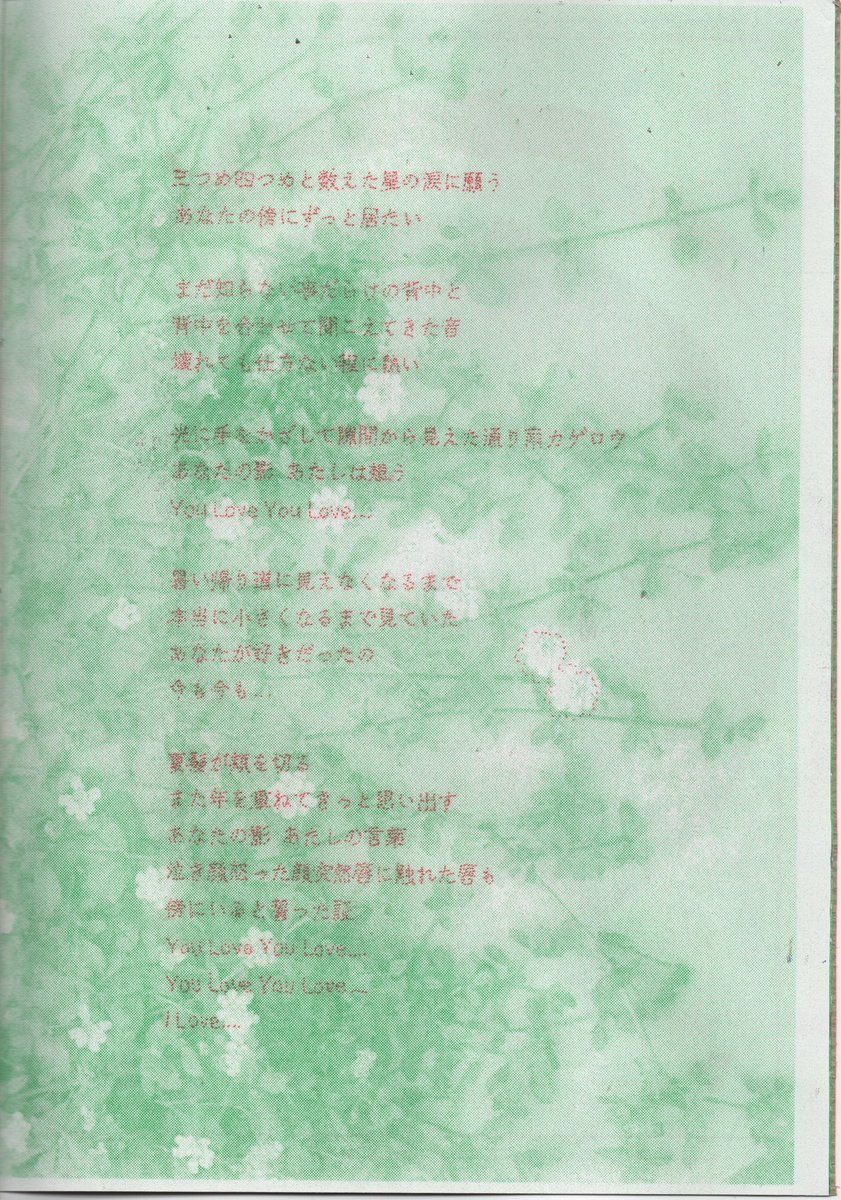 三つめ四つめと数えた星の涙に願う
あなたの傍にずっと居たい
まだ知らない事だらけの背中と
背中を合わせて聞こえてきた音
壊れても仕方ない程に熱い
光に手をかざして隙間から見えた通り雨カゲロウ
あなたの影 あたしは想う
You Love You Love....
暑い帰り道に見えなくなるまで
本当に小さくなるまで見ていた
あなたが好きだったの
今も今も...
夏髪が頬を切る
また年を重ねてきっと思い出す
あなたの影 あたしの言葉
泣き顔怒った顔突然唇に触れた唇も
傍にいると誓った証
You Love You Love....
You Love You Love....
I Love....